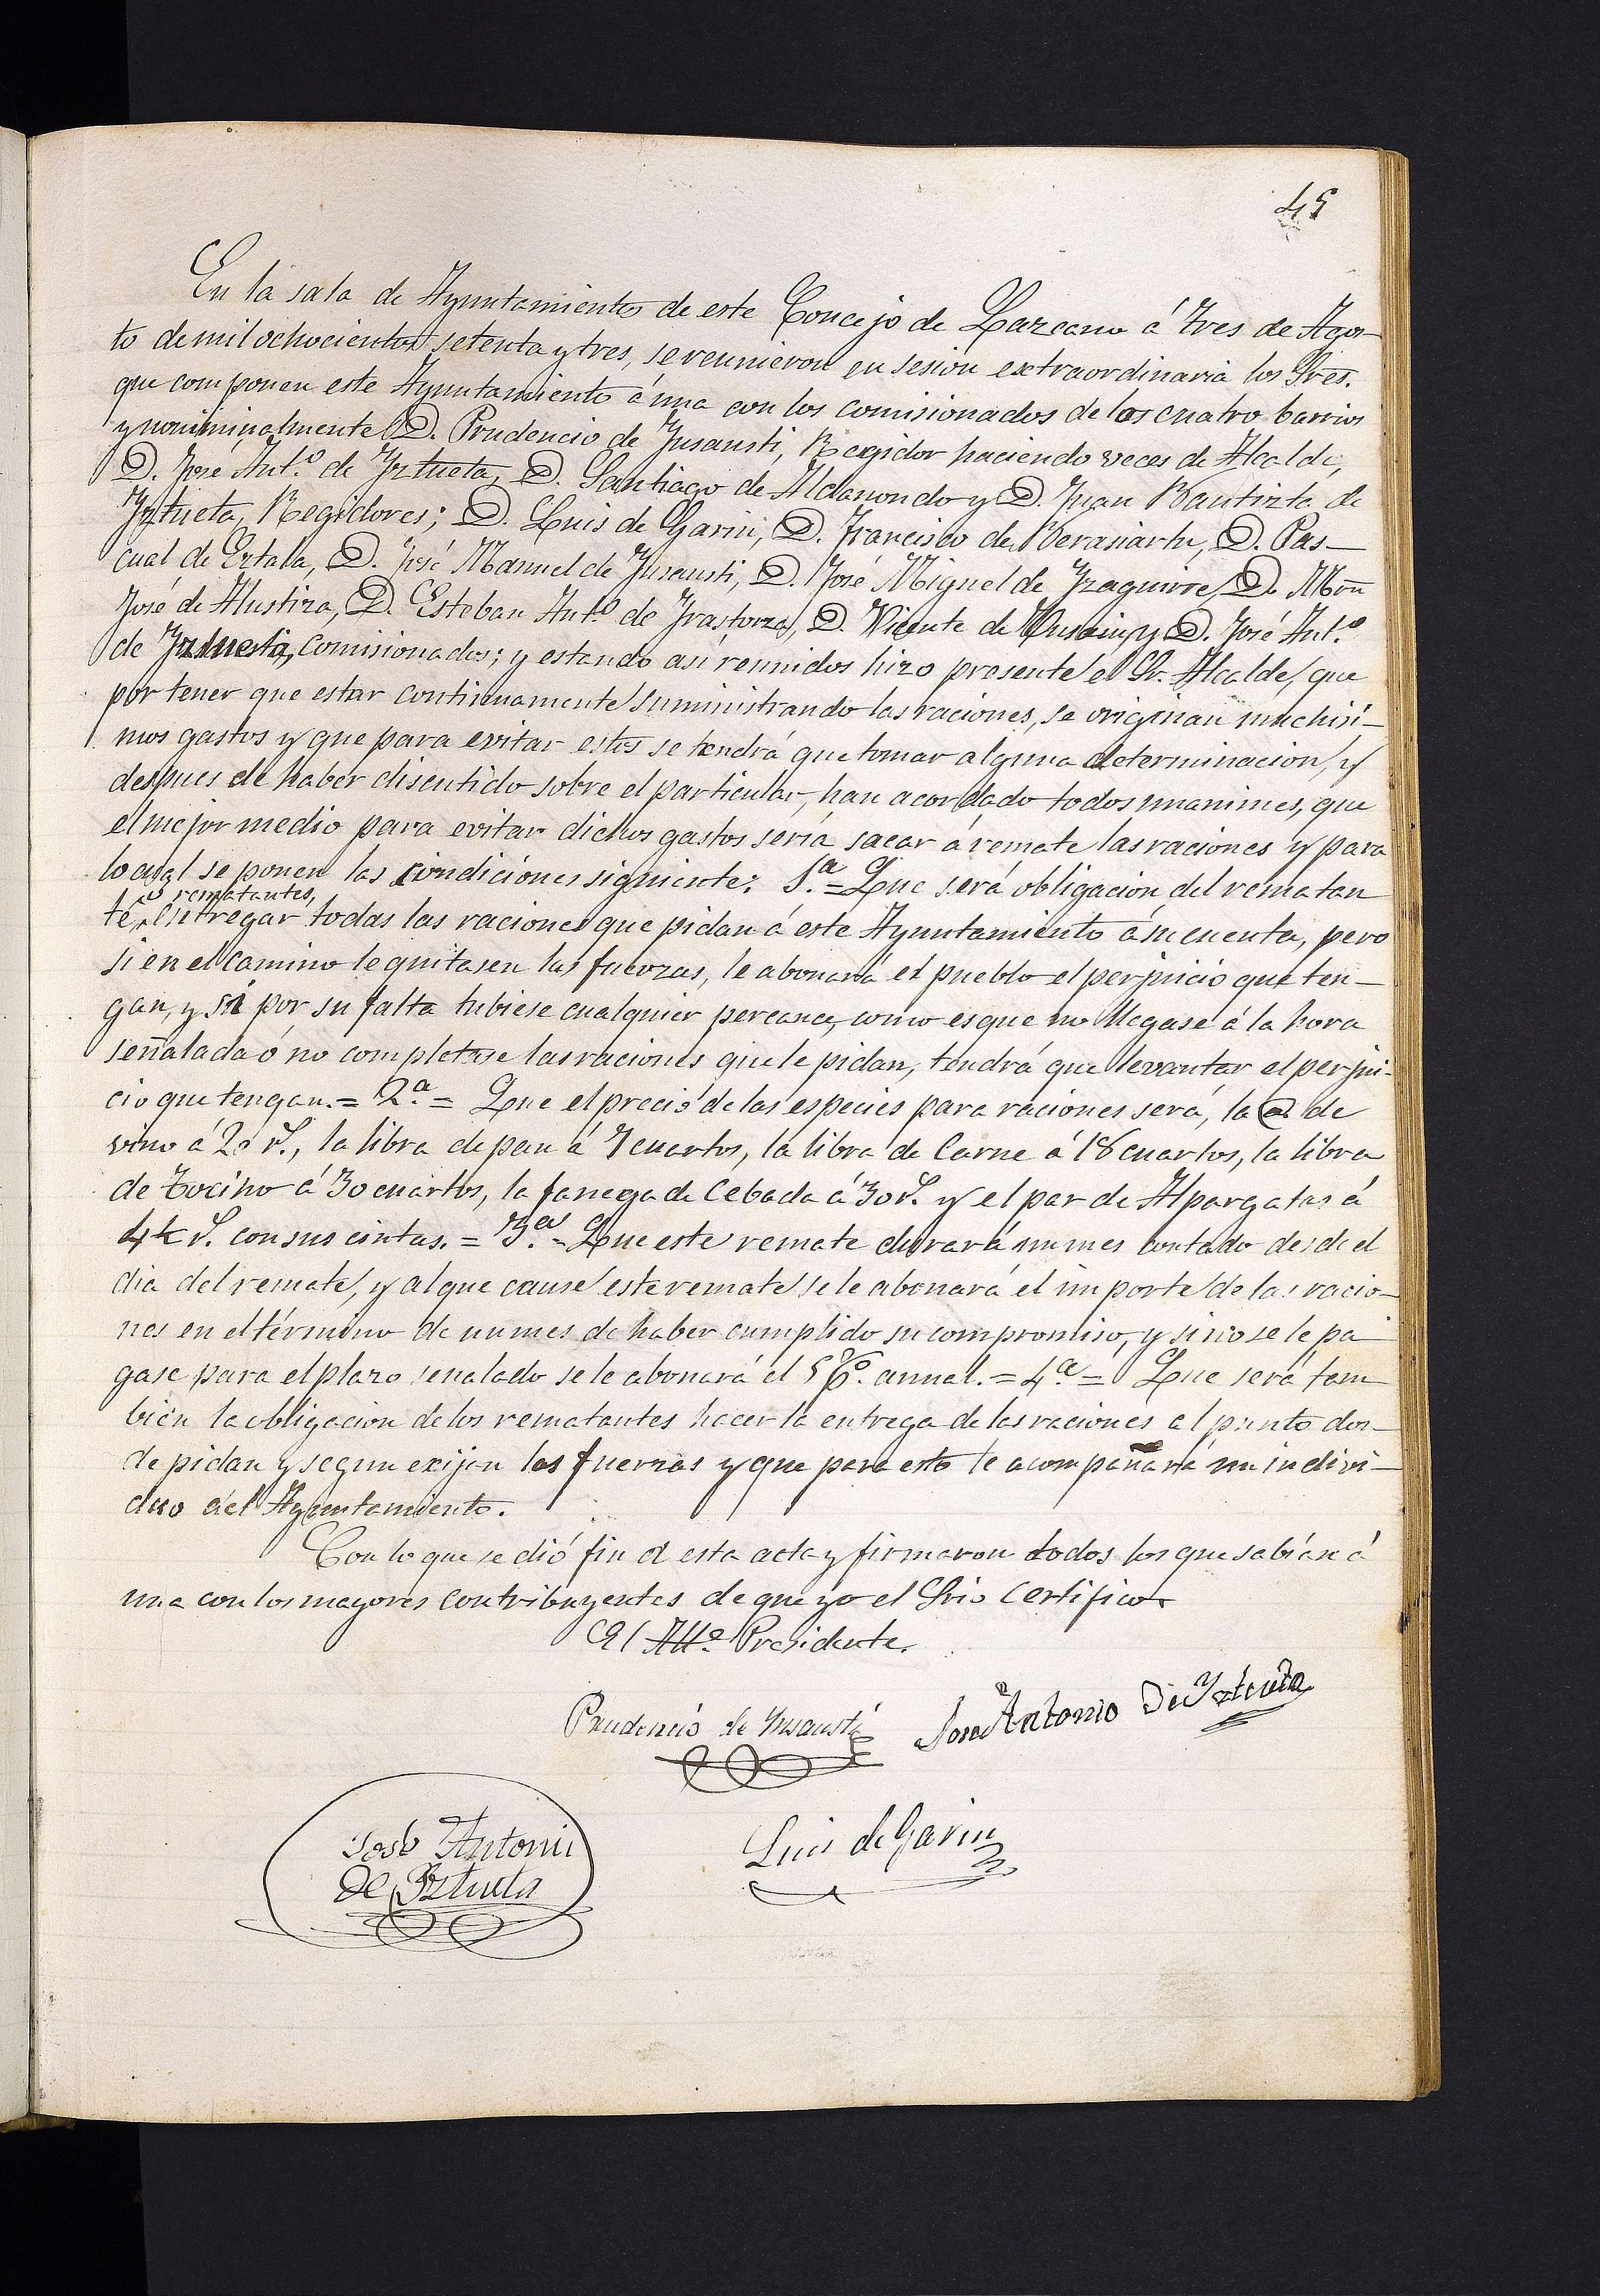 45
En la sala de Ayuntamiento de este Concejo de Lazcano á tres de Agos-
to de mil ochocientos setenta y tres, se reunieron en sesion extraordinaria los Sres.
que componen este Ayuntamiento á una con los comisionados de los cuatro barrios
y nominalmente D. Prudencio de Ynsausti, Regidor haciendo veces de Alcalde,
D. José Ant.º de Yztueta, D. Santiago de Aldanondo y D. Juan Bautizta de
Yztueta, Regidores; D. Luis de Garin, D. Francisco de Berasiartu, D. Pas-
cual de Eztala, D. José Manuel de Ynsausti, D. José Miguel de Yzaguirre, D.
José de Alustiza, D. Esteban Ant.º de Yrastorza, D. Vicente de y D. José Ant.º
de Yztueta, Comisionados; y estando asi reunidos hizo presente el Sr. Alcalde, que
por tener que estar continuamente suministrando las raciones, se originan muchisi-
mos gastos y que para evitar estos se tendrá que tomar alguna determinacion, y
despues de haber discutido sobre el particular, han acordado todos unanimes, que
el mejor medio para evitar dichos gastos seria sacar á remate las raciones y para
lo cual se ponen las condiciones siguiente: 1.ª = Que será obligacion del rematan
ó rematantes,
te entregar todas las raciones que pidan á este Ayuntamiento á su cuenta, pero
si en el camino le quitasen las fuerzas, le abonará el pueblo el perjuicio que ten-
gan, y si por su falta tubiese cualquier percance, como es que no llegase á la hora
señalada ó no completase las raciones que le pidan, tendrá que levantar el perjui-
cio que tengan. = 2.ª = Que el precio de las especies para raciones será, la @ de
vino á 20 r.s, la libra de pan á 7 cuartos, la libra de Carne á 18 cuartos, la libra
de Tocino á 30 cuartos, la fanega de Cebada á 30 r.s y el par de Alpargatas á
4 r.s con sus cintas. = 3.ª = Que este remate durará un mes contado desde el
dia del remate, y al que cause este remate se le abonará el importe de las racio-
nes en el término de un mes de haber cumplido su compromiso, y si no se le pa
gase para el plazo senalado se le abonará el 5 %. annal. = 4.ª = Que será tam
bien la obligacion de los rematantes hacer la entrega de las raciones al punto don-
de pidan y segun exijan las fuerzas y que para esto le acompañará un indivi-
duo del Ayuntamiento.
Con lo que se dió fin á esta acta y firmaron todos los que sabian á
una con los mayores contribuyentes de que yo el Srio certifico.
El Alc.e Presidente.
Prudencio de Ynsausti
Jose Antonio De Yztueta
José Antonio
de Yztueta
Luis de Garin